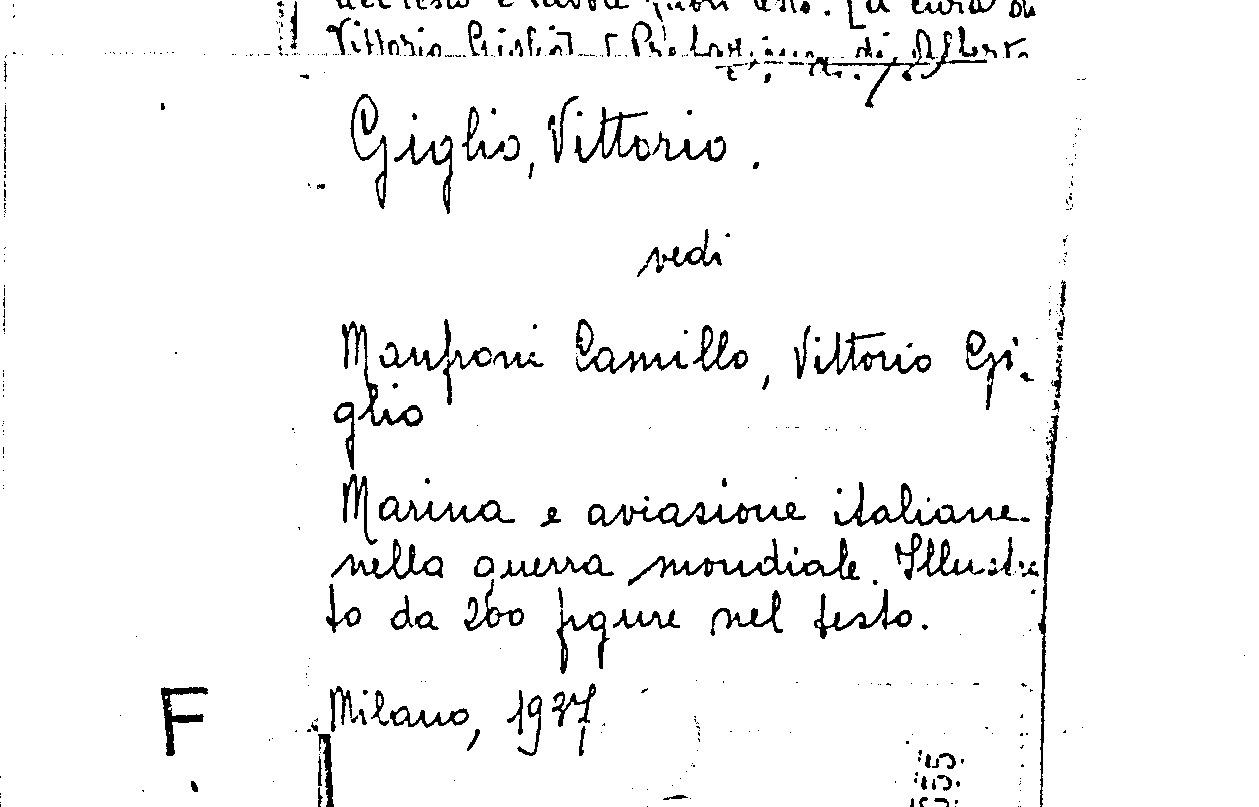 del testo e tavole fuori testo. [A cura di
Vittorio Giglio] [Prefazione di Alberto
Giglio, Vittorio.
vedi
Manfroni Camillo, Vittorio Gi-
glio
Marina e aviazione italiane
nella guerra mondiale. Illustra
to da 200 figure nel testo.
F
Milano, 1937